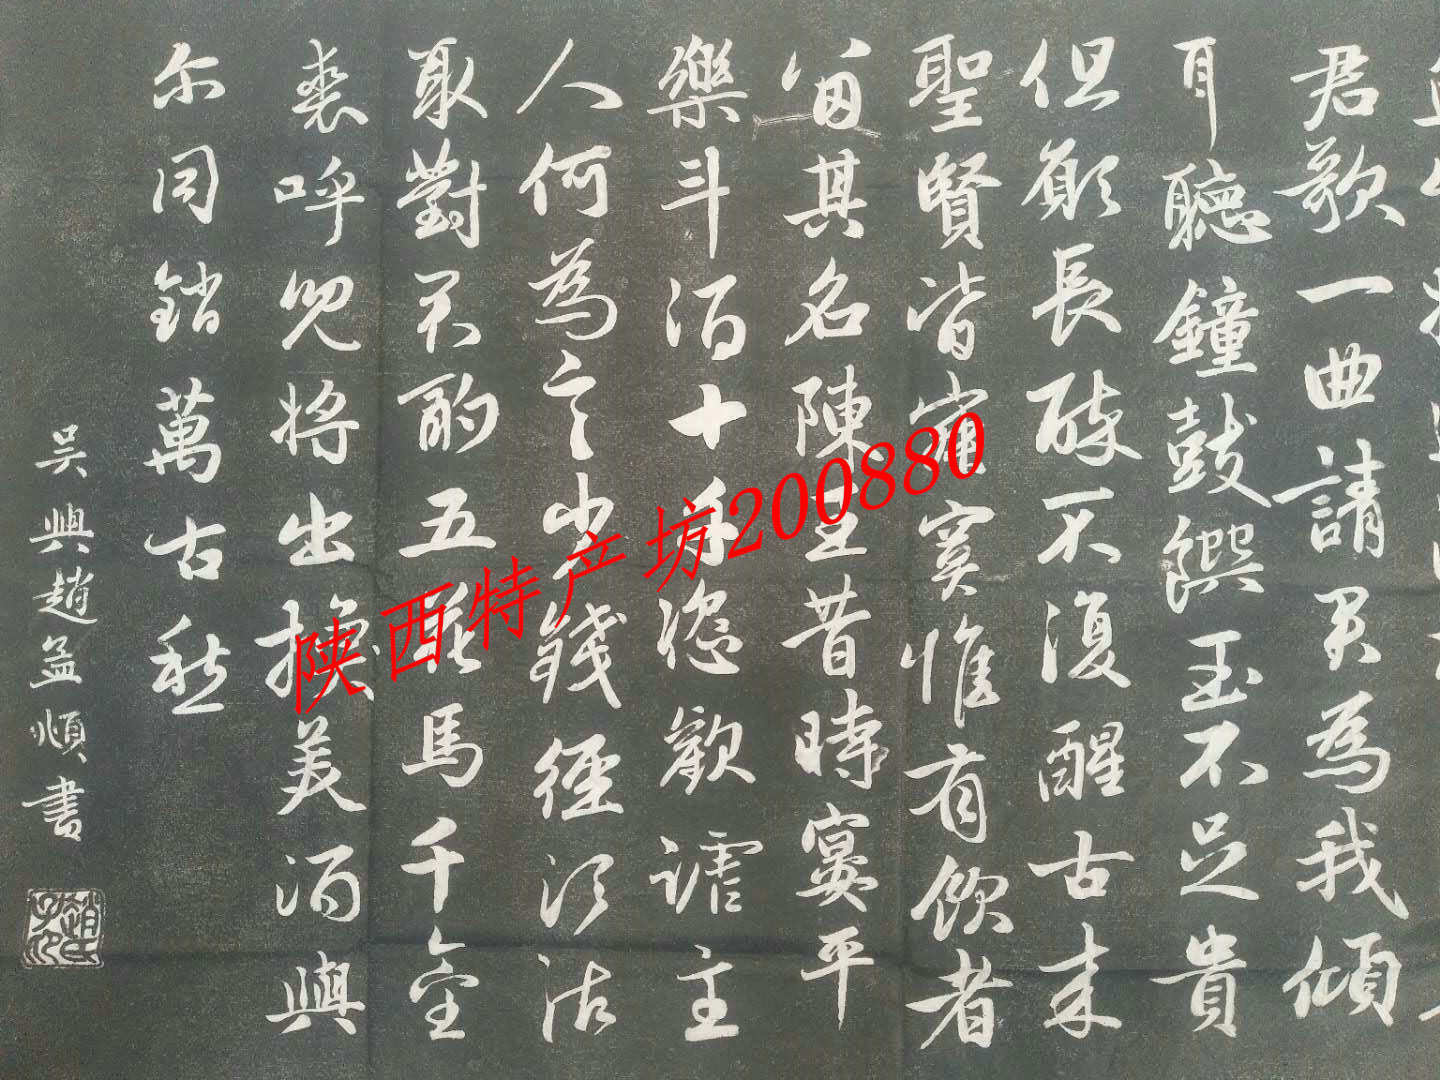 君歌一曲請君為我傾
耳聽鐘鼓饌玉不足貴
但願長醉不復醒古來
聖賢皆寂寞惟有飲者
留其名陳王昔時宴平
樂斗酒十千恣歡謔主
人何為言少錢徑須沽
取對君酌五花馬千金
裘呼兒將出換美酒與
尔同銷萬古愁
吴興趙孟頫書
趙氏子昂
陕西特产坊200880